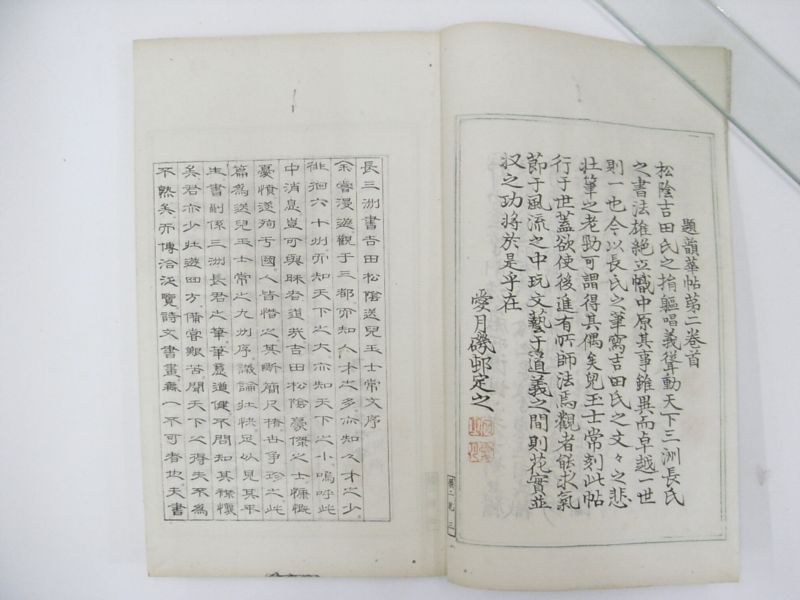 題韻華帖第二卷首
松陰吉田氏之捐軀唱義聳動天下三洲長氏
之書法雄絕立幟中原其事雖異而卓越一世
則一也今以長氏之筆寫吉田氏之文々之悲
壮筆之老勁可謂得其偶矣兒玉士常刻此帖
行于世蓋欲使後進有所師法焉觀者能求氣
節于風流之中玩文藝于道義之間則花實並
收之功将於是乎在
愛月磯邨定之
長三洲書吉田松陰送兒玉士常文序
余嘗漫遊觀于三都而知人才之多而知人才之少
徘徊六十州而知天下之大而知天下之小嗚呼此
中消息豈可與昧者道哉吉田松陰豪傑之士慷慨
憂憤遂殉于國人皆惜之其斷簡尺楮世争珍之此
篇為送兒玉士常之九州序議論壮快足以見其平
生書則係三洲長君之筆筆意遒健不問知其襟懷
矣君亦少壮遊四方備嘗艱苦聞天下之得失不為
不熟矣而博洽泛覽詩文書畫無一不可者也夫書